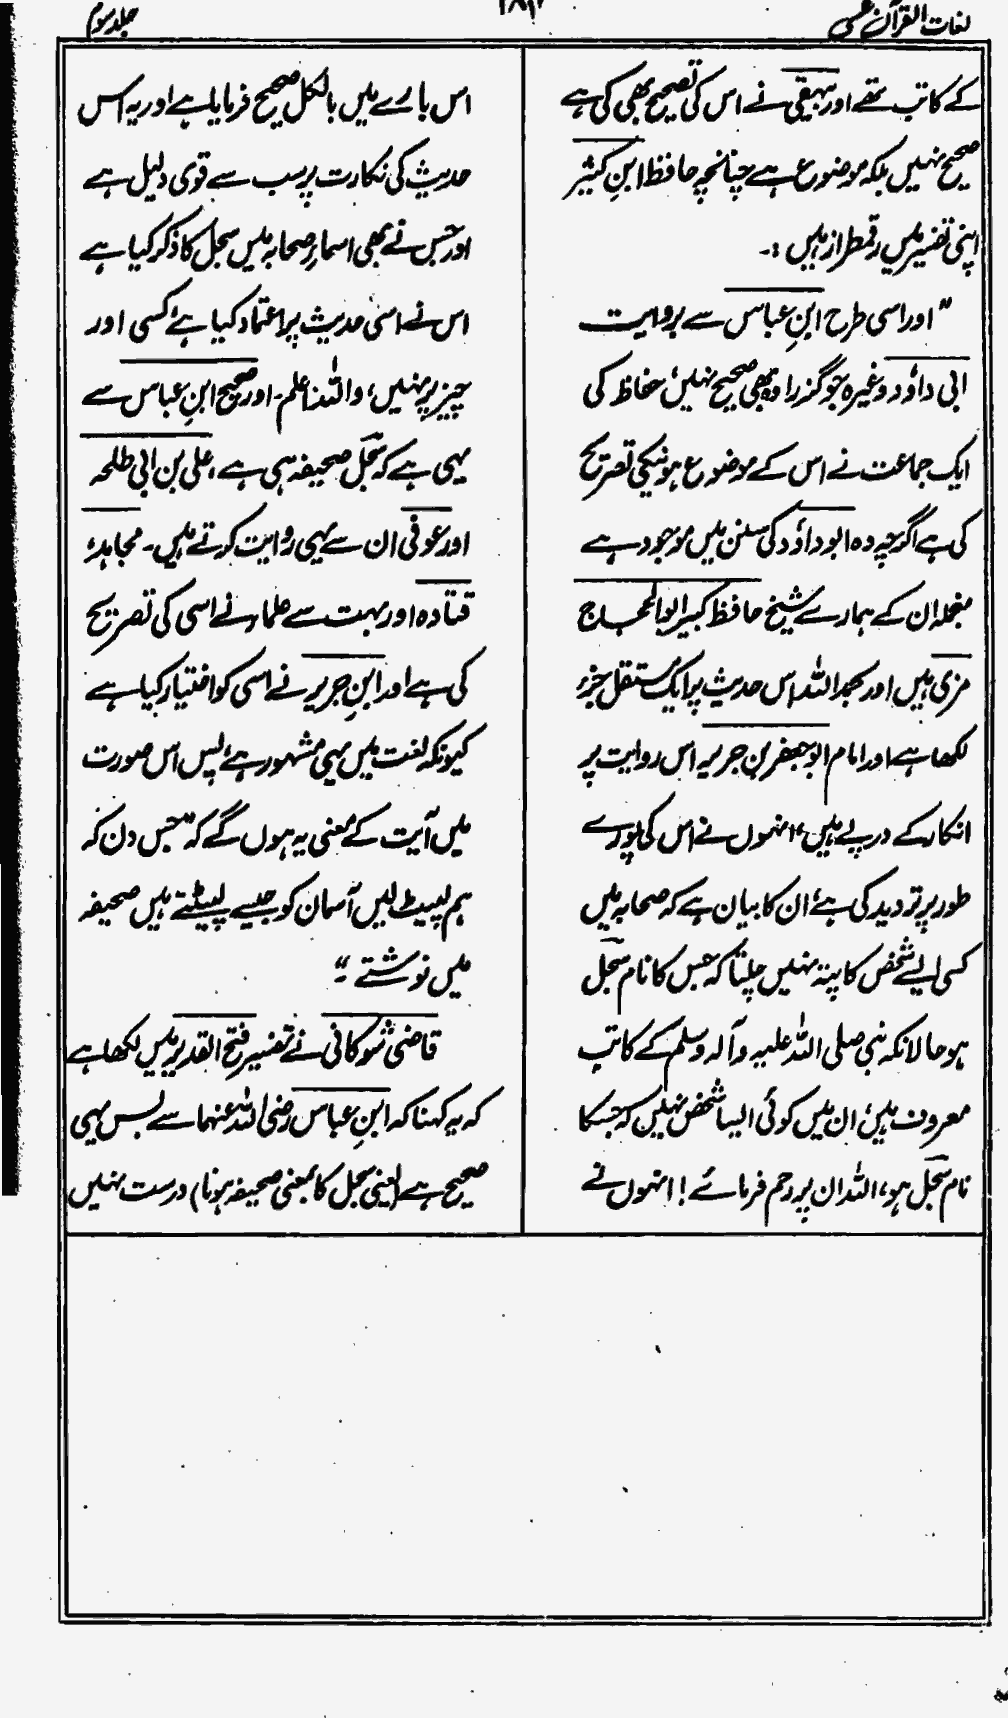 لغات القرآن
جلد سوم
کے کاتب تھے اور بیہقی نے اس کی تصحیح بھی کی ہے
صحیح نہیں بلکہ موضوع ہے چنانچہ حافظ ابنِ کثیر
اپنی تفسیر میں رقمطراز ہیں :۔
”اور اسی طرح ابنِ عباس سے بروایت
ابی داؤد وغیرہ جو گزرا وہ بھی صحیح نہیں، حفاظ کی
ایک جماعت نے اس کے موضوع ہونیکی تصریح
کی ہے اگرچہ وہ ابوداؤد کی سنن میں موجود ہے
منجملہ ان کے ہمارے شیخ حافظ کبیر ابوالحجاج
مزی ہیں اور بحمد اللہ اس حدیث پر ایک مستقل جزء
لکھا ہے اور امام ابوجعفر بن جریر اس روایت پر
انکار کے درپے ہیں، انہوں نے اس کی پورے
طور پر تردید کی ہے، ان کا بیان ہے کہ صحابہ میں
کسی ایسے شخص کا پتہ نہیں چلتا کہ جس کا نام سجل
ہو حالانکہ نبی صلی اللہ علیہ وآلہ وسلم کے کاتب
معروف ہیں، ان میں کوئی ایسا شخص نہیں کہ جسکا
نام سجل ہو، اللہ ان پر رحم فرمائے ! انہوں نے
اس بارے میں بالکل صحیح فرمایا ہے اور یہ اس
حدیث کی نکارت پر سب سے قوی دلیل ہے
اور جس نے بھی اسماءِ صحابہ میں سجل کا ذکر کیا ہے
اس نے اسی حدیث پر اعتماد کیا ہے، کسی اور
چیز پر نہیں، واللہ اعلم۔ اور صحیح ابنِ عباس سے
یہی ہے کہ سجل صحیفہ ہی ہے، علی بن ابی طلحہ
اور عوفی ان سے یہی روایت کرتے ہیں۔ مجاہد،
قتادہ اور بہت سے علماء نے اسی کی تصریح
کی ہے اور ابنِ جریر نے اسی کو اختیار کیا ہے
کیونکہ لغت میں یہی مشہور ہے، پس اس صورت
میں آیت کے معنی یہ ہوں گے کہ ”جس دن کہ
ہم لپیٹ لیں آسمان کو جیسے لپیٹتے ہیں صحیفہ
میں نوشتے ۔“
قاضی شوکانی نے تفسیر فتح القدیر میں لکھا ہے
کہ یہ کہنا کہ ابنِ عباس رضی اللہ عنہما سے بس یہی
صحیح ہے (یعنی سجل کا بمعنی صحیفہ ہونا) درست نہیں